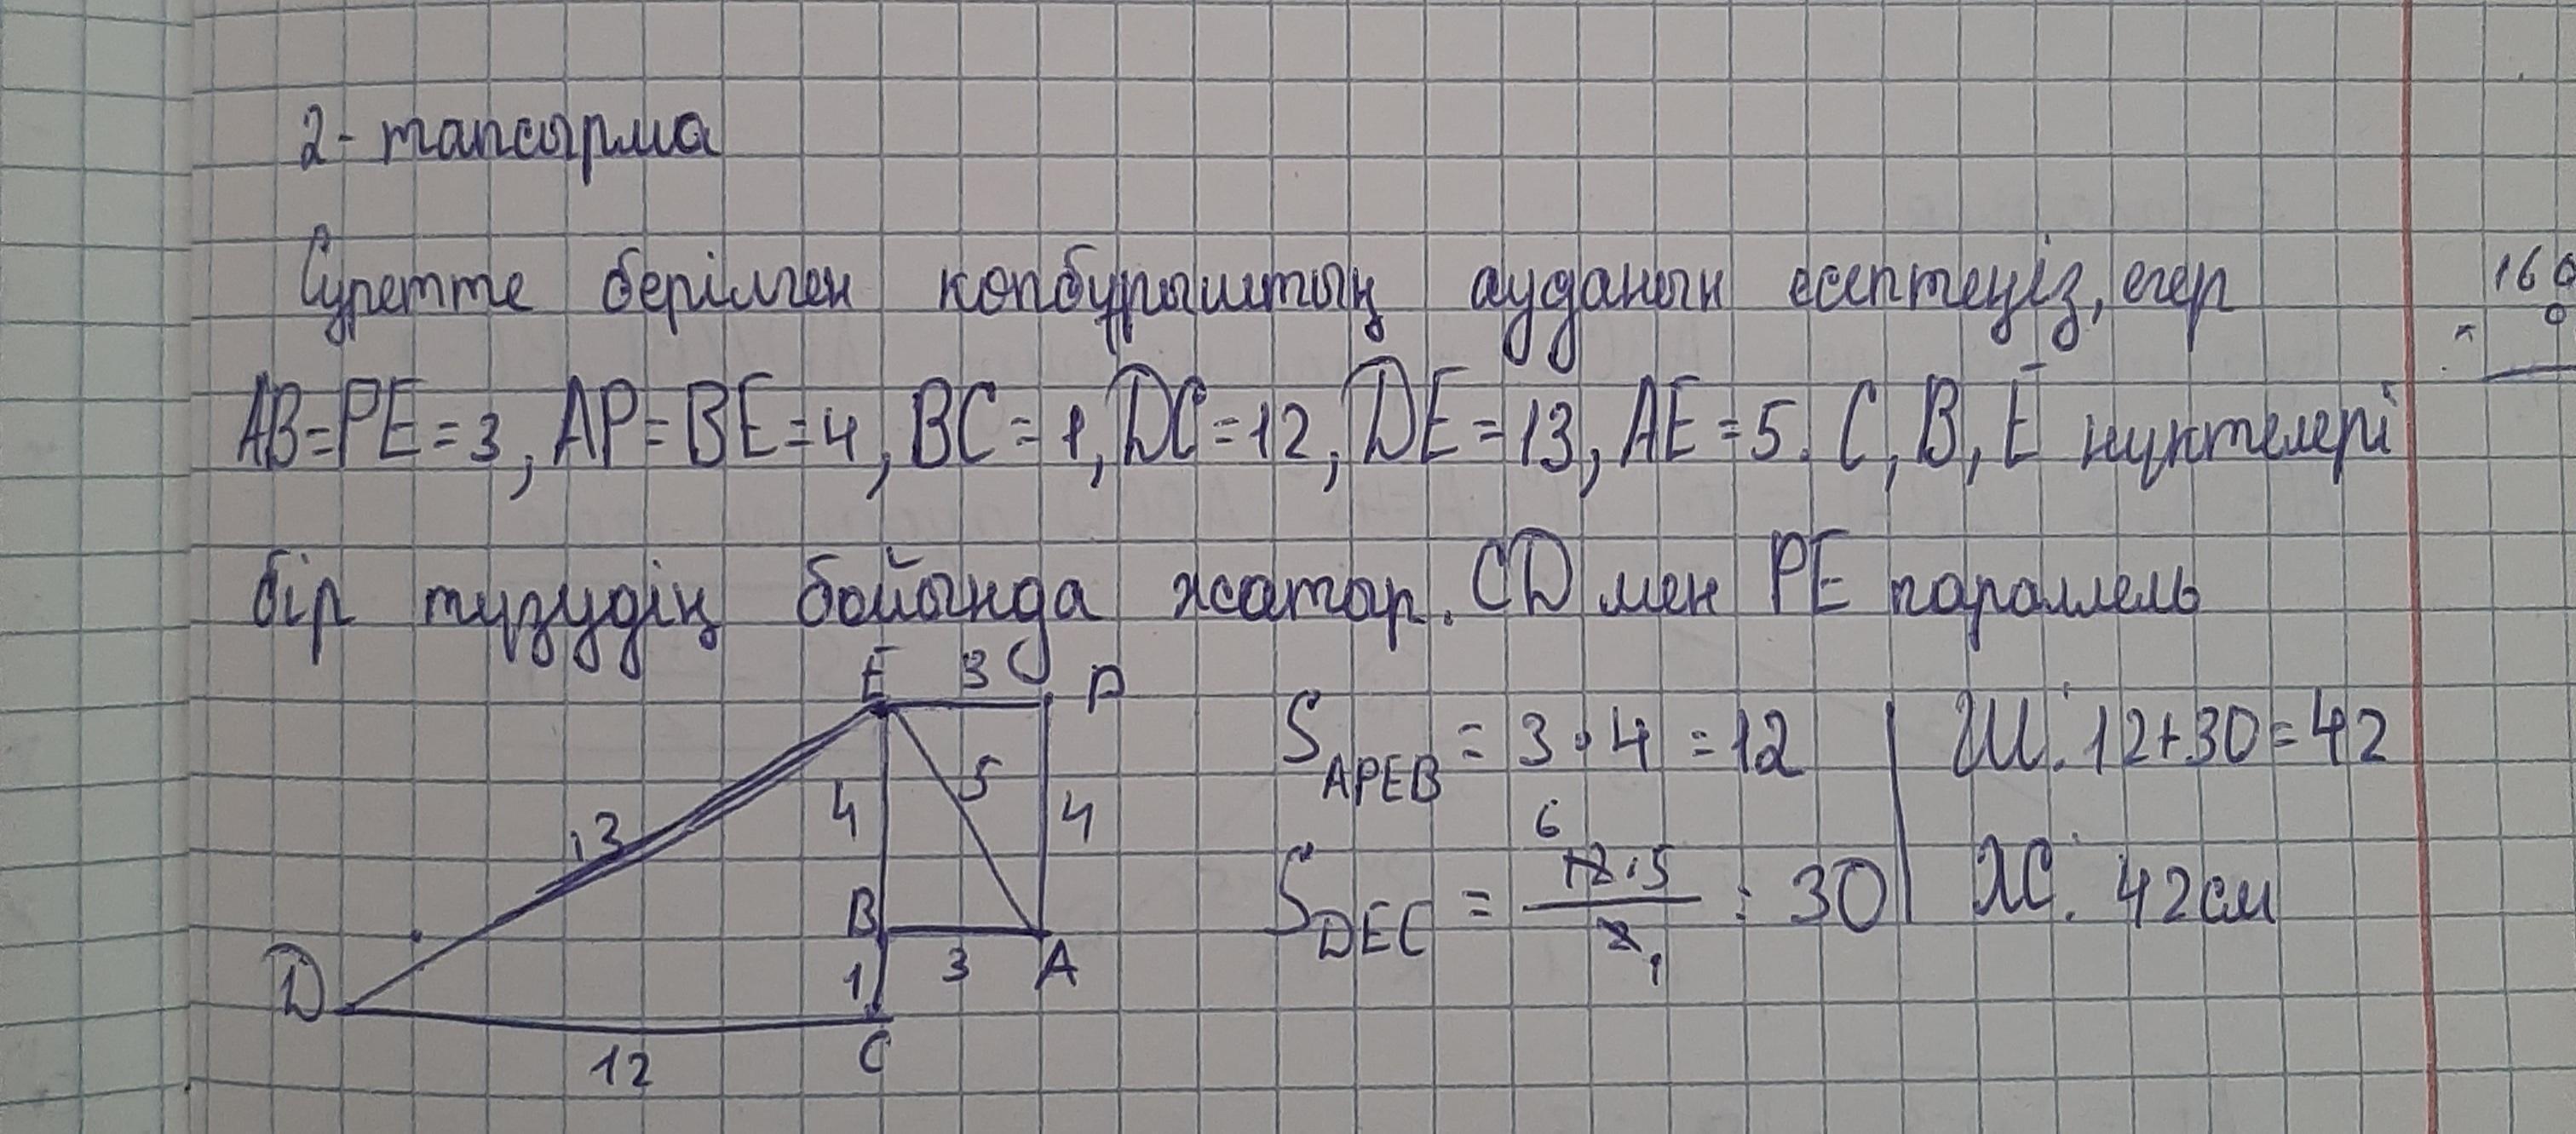 2- тапсырма
Суретте берілген көпбұрыштың ауданын есептеңіз, егер
AB=PE=3, AP=BE=4, BC=1, DC=12, DE=13, AE=5. C, B, E нүктелері
бір түзудің бойында жатар. CD мен PE параллель
E 3 P
5
4 4
13
B
D 1 3 A
12 C
S APEB = 3·4=12
S DEC = 12·5 / 2 = 30
6
1
Ш. 12+30=42
Ж. 42см
160